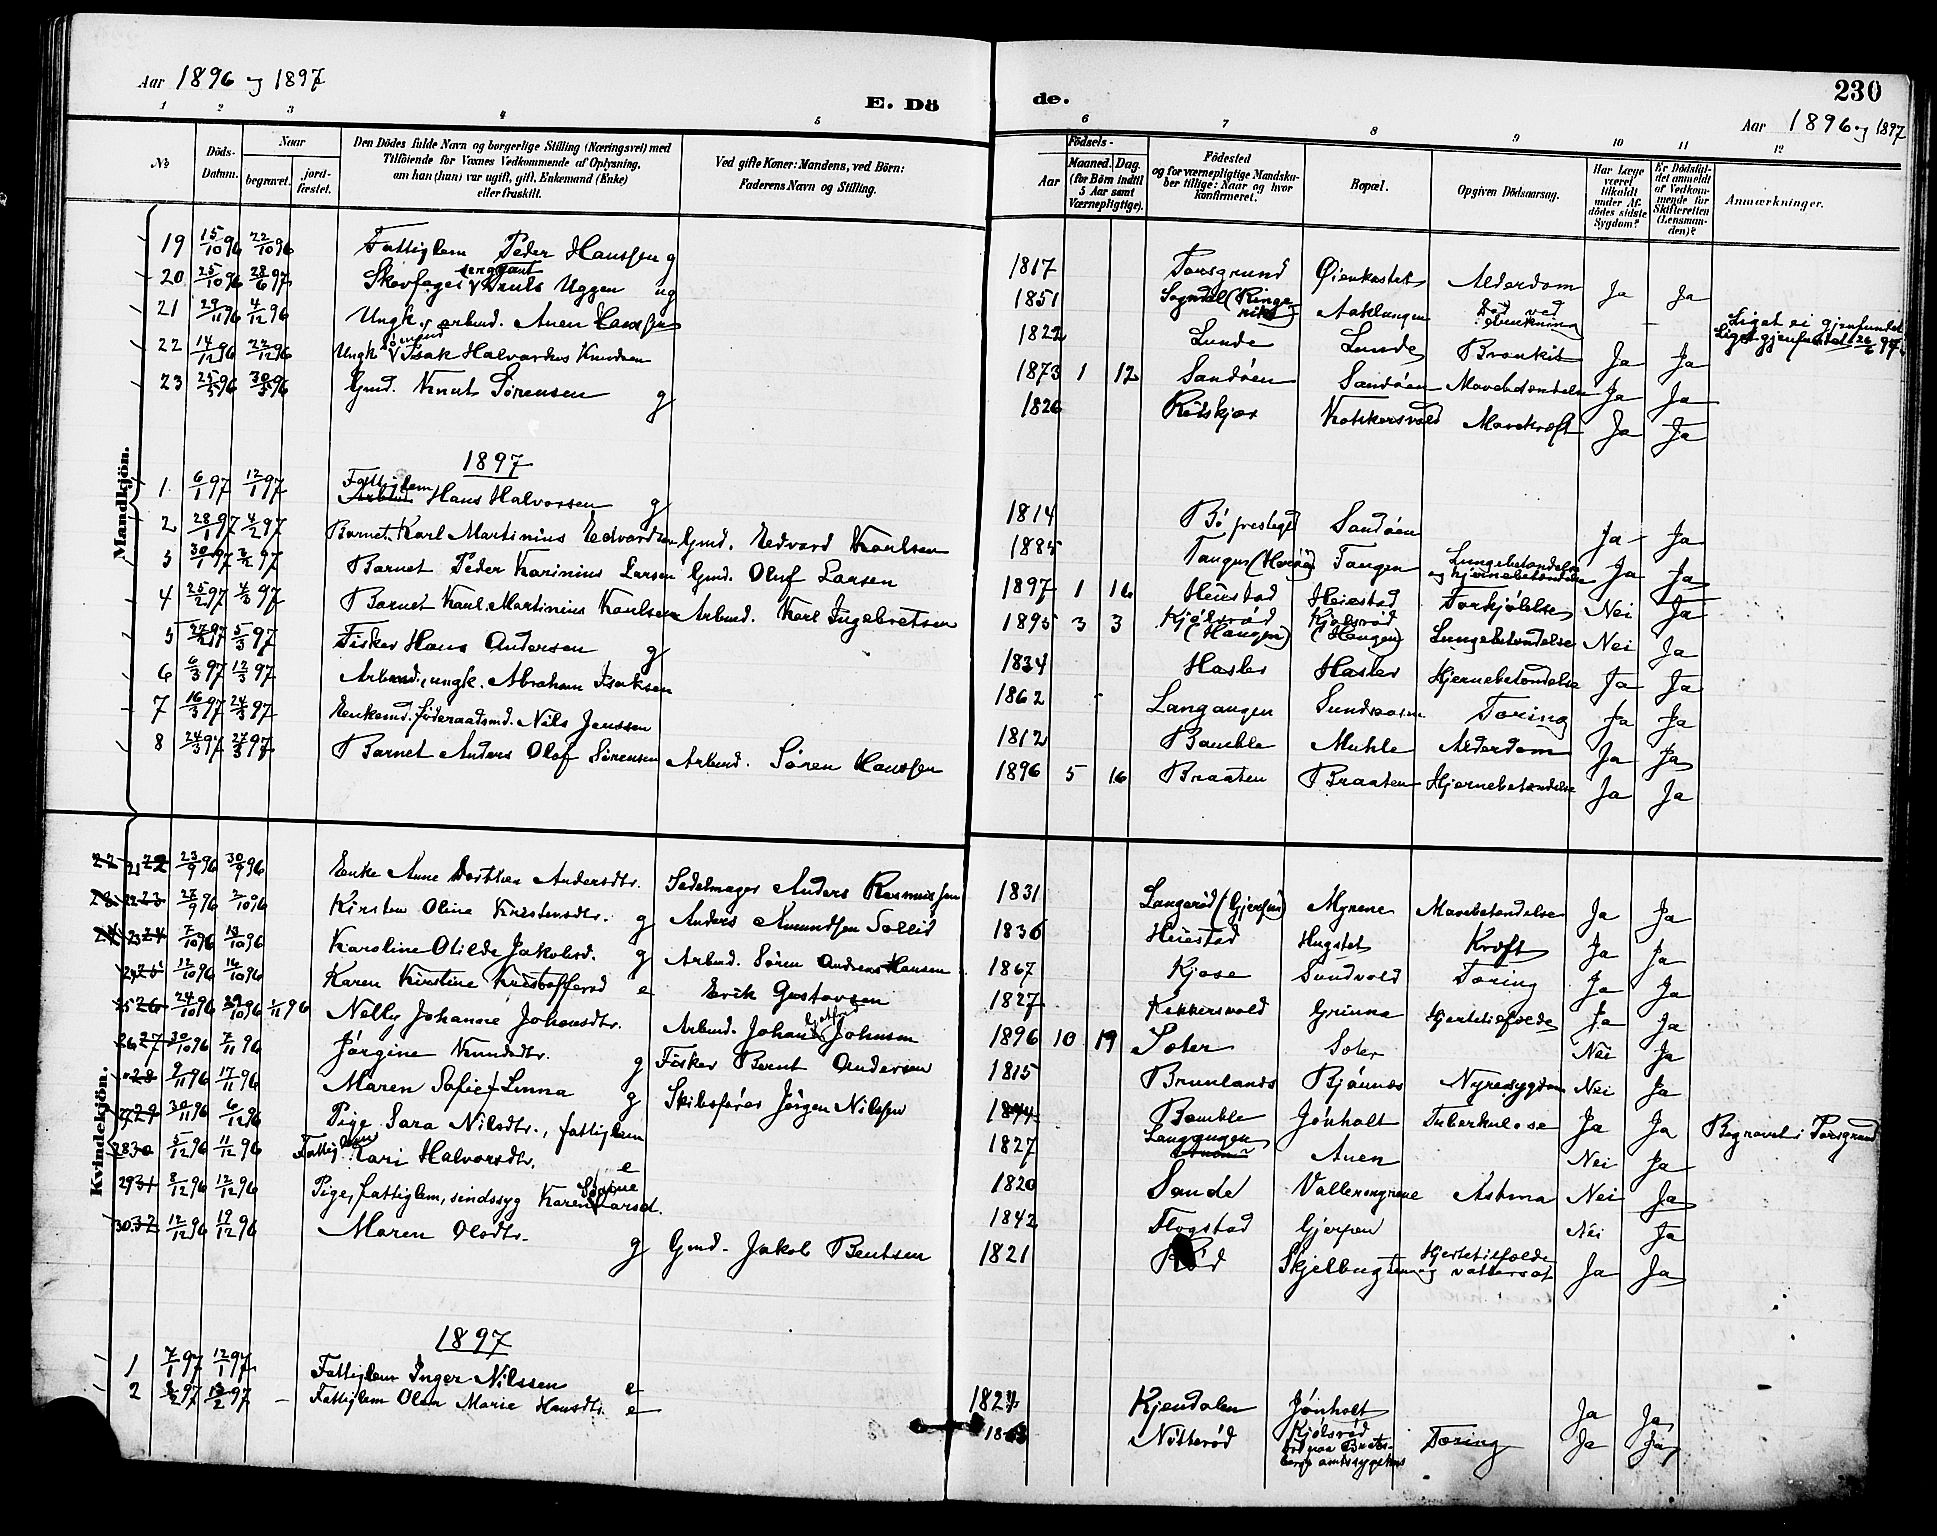 Aar 1896 og 1897
E. Dö
de.
230
Aar 1896 og 1897
1 2 3 4 5 6 7 8 9 10 11 12
No
Döds-Datum.
Naar
begravet.
jord-fæstet.
Den Dödes fulde Navn og borgerlige Stilling (Næringsvei) med
Tilföiende for Voxnes Vedkommende af Oplysning,
om han (hun) var ugift, gift, Enkemand (Enke)
eller fraskilt.
Ved gifte Koner: Mandens, ved Börn:
Faderens Navn og Stilling.
Födsels-
Aar
Maaned. Dag.
(for Börn indtil
5 Aar samt
Værnepligtige).
Födested
og for værnepligtige Mandska-
ber tillige: Naar og hvor
konfirmeret.
Bopæl.
Opgiven Dödsaarsag.
Har Læge
været
tilkaldt
under Af-
dödes sidste
Sygdom?
Er Dödsfal-
det anmeldt
af Vedkom-
mende for
Skifteretten
(Lensman-
den)?
Anmærkninger.
Mandkjön.
19 15/10 96 22/10 96 Fattiglem Peder Hanssen g 1817 Porsgrund Øienkastet Alderdom Ja Ja
20 25/10 96 28/6 97 Skovfoged sergeant Truls Uggen ug 1851 Sogndal (Ringerike) Aaklungen Død ved drukning — Liget ei gjenfundet Liget gjenfundet 26/6 97
21 29/11 96 4/12 96 Ungk. arbmd. Auen Hanssen 1822 Lunde Lunde Bronkit Ja Ja
22 14/12 96 22/12 96 Ungk sömand Isak Halvardus Knudsen 1873 1 12 Sandöen Sandöen Mavebetændelse Ja Ja
23 96 96 Gmd. Knut Sörensen g 1826 Rödskjær Kokkersvold Mavekræft Ja Ja
1897
1. 6/1 97 12/1 97 Fattiglem Hans Halvorsen g 1814 Bö prestegd Sandöen Ja Ja
2 28/1 97 4/2 97 Barnet Karl Martinius Edvardsen Gmd. Edvard Karlsen 1885 Tangen (Heröa) Tangen Lungebetændelse og hjernebetændelse Ja Ja
3 30/1 97 97 Barnet Peder Karinius Larsen Gmd. Oluf Larsen 1897 1 16 Heiestad Heiestad Forkjölelse Nei Ja
4 25/2 97 97 Barnet Karl Martinius Karlsen Arbmd. Karl Ingebretsen 1895 3 3 Kjölsröd (Haugen) Kjölsröd (Haugen) Lungebetændelse Nei Ja
5 27/2 97 5/3 97 Fisker Hans Andersen g 1834 Hasler Hasler Hjernebetændelse Ja Ja
6 6/3 97 12/3 97 Arbmd., ungk. Abraham Isaksen 1862 Langangen Sundsaasen Tæring Ja Ja
7 16/3 97 24/3 97 Enkemd. föderaadsmd. Nils Jenssen 1812 Bamble Muhle Alderdom Ja Ja
8 24/3 97 97 Barnet Anders Olaf Sörensen Arbmd. Sören Hanssen 1896 5 16 Braaten Braaten Hjernebetændelse Ja Ja
Kvindekjön.
21 23/9 96 30/9 96 Enke Anne Dorthea Andersdtr. Sadelmager Anders Rasmussen 1831 Langeröd (Gjerpen) Myrene Mavebetændelse Ja Ja
22 28/9 96 2/10 96 Kirsten Oline Kristensdtr. g Anders Amundsen Sollid 1836 Heiestad Hugstet Kræft Ja Ja
23 7/10 96 13/10 96 Karoline Otilde Jakobsd. g Arbmd. Sören Andreas Hansen 1867 Kjose Sundvold Tæring Ja Ja
24 12/10 96 16/10 96 Karen Kirstine Kristoffersd e Erik Gustavsen 1827 Kokkersvold Grinna Hjertetilfælde Ja Ja
25 24/10 96 29/10 96 1/11 96 Nelly Johanne Johansdtr. Arbmd. Johan Johnsen 1896 10 19 Soler Soler Nei Ja
26 30/10 96 7/11 96 Jörgine Knudsdtr. g Fisker Bernt Andersen 1815 Brunlands Bjönnes Nyresygdom Nei Ja
9/11 96 17/11 96 Maren Sofie Linna g Skibsförer Jörgen Nilssen 1844 Bamble Jönholt Tuberkulose Ja Ja Begravet i Porsgrund
27 30/11 96 6/12 96 Pige Sara Nilsdtr., fattiglem 1827 Langangen Auen Nei Ja
28 5/12 96 11/12 96 Fattiglem Kari Halvorsdtr. e 1820 Sande Vallermyrene Astma Nei Ja
29 8/12 96 12/12 96 Pige, fattiglem, sindssyg Karen Larsd. 1842 Flogstad Gjerpen Nei Ja
30 12/12 96 19/12 96 Maren Olsdtr. g Gmd. Jakob Bentsen 1821 Röd Skjelbugten Hjertetilfælde og vattersot Ja Ja
1897
1 7/1 97 12/1 97 Fattiglem Inger Nilssen e 1827 Kjendalen Jönholt Ja Ja
2 97 97 — Fattiglem Olea Marie Hansdtr. e 1863 Nötteröd Kjölsröd död paa Bratsberg amtssygehus Tæring Ja Ja